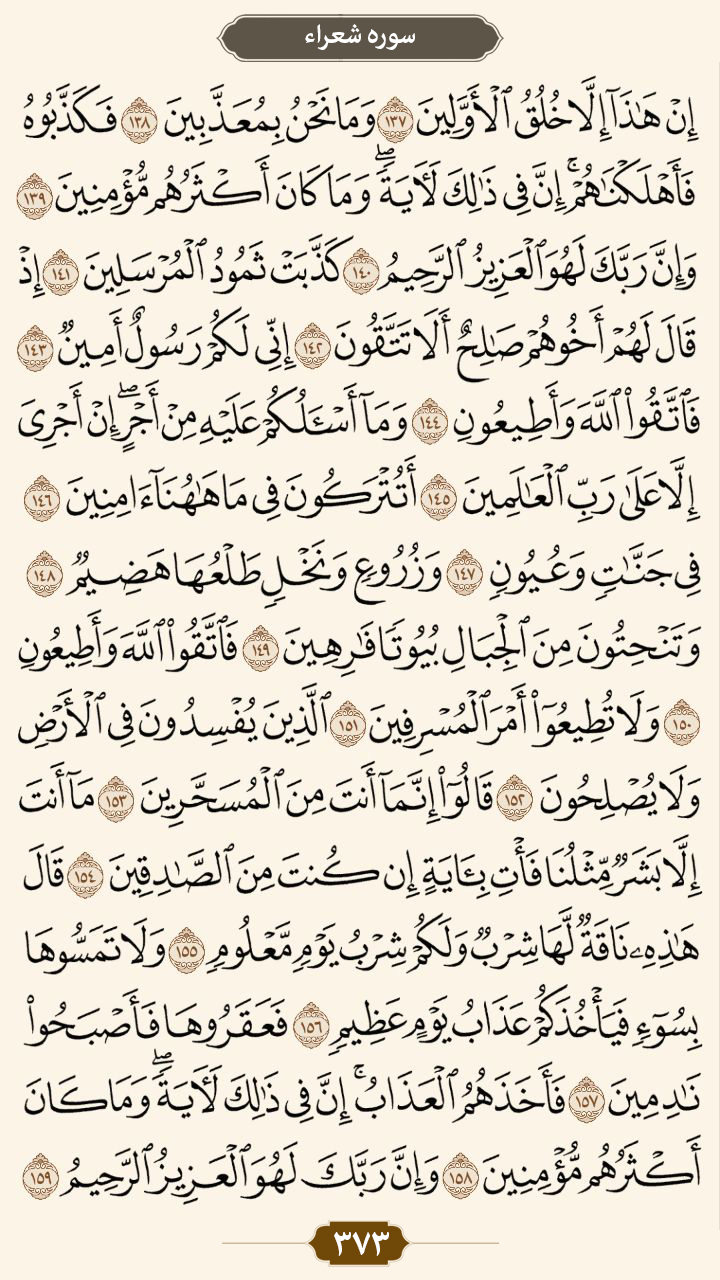 سوره شعراء
إِنْ هَٰذَآ إِلَّا خُلُقُ ٱلْأَوَّلِينَ ١٣٧ وَمَا نَحْنُ بِمُعَذَّبِينَ ١٣٨ فَكَذَّبُوهُ
فَأَهْلَكْنَٰهُمْ ۚ إِنَّ فِى ذَٰلِكَ لَـَٔايَةً ۖ وَمَا كَانَ أَكْثَرُهُم مُّؤْمِنِينَ ١٣٩
وَإِنَّ رَبَّكَ لَهُوَ ٱلْعَزِيزُ ٱلرَّحِيمُ ١٤٠ كَذَّبَتْ ثَمُودُ ٱلْمُرْسَلِينَ ١٤١ إِذْ
قَالَ لَهُمْ أَخُوهُمْ صَٰلِحٌ أَلَا تَتَّقُونَ ١٤٢ إِنِّى لَكُمْ رَسُولٌ أَمِينٌ ١٤٣
فَٱتَّقُوا۟ ٱللَّهَ وَأَطِيعُونِ ١٤٤ وَمَآ أَسْـَٔلُكُمْ عَلَيْهِ مِنْ أَجْرٍ ۖ إِنْ أَجْرِىَ
إِلَّا عَلَىٰ رَبِّ ٱلْعَٰلَمِينَ ١٤٥ أَتُتْرَكُونَ فِى مَا هَٰهُنَآ ءَامِنِينَ ١٤٦
فِى جَنَّٰتٍ وَعُيُونٍ ١٤٧ وَزُرُوعٍ وَنَخْلٍ طَلْعُهَا هَضِيمٌ ١٤٨
وَتَنْحِتُونَ مِنَ ٱلْجِبَالِ بُيُوتًا فَٰرِهِينَ ١٤٩ فَٱتَّقُوا۟ ٱللَّهَ وَأَطِيعُونِ
١٥٠ وَلَا تُطِيعُوٓا۟ أَمْرَ ٱلْمُسْرِفِينَ ١٥١ ٱلَّذِينَ يُفْسِدُونَ فِى ٱلْأَرْضِ
وَلَا يُصْلِحُونَ ١٥٢ قَالُوٓا۟ إِنَّمَآ أَنتَ مِنَ ٱلْمُسَحَّرِينَ ١٥٣ مَآ أَنتَ
إِلَّا بَشَرٌ مِّثْلُنَا فَأْتِ بِـَٔايَةٍ إِن كُنتَ مِنَ ٱلصَّٰدِقِينَ ١٥٤ قَالَ
هَٰذِهِۦ نَاقَةٌ لَّهَا شِرْبٌ وَلَكُمْ شِرْبُ يَوْمٍ مَّعْلُومٍ ١٥٥ وَلَا تَمَسُّوهَا
بِسُوٓءٍ فَيَأْخُذَكُمْ عَذَابُ يَوْمٍ عَظِيمٍ ١٥٦ فَعَقَرُوهَا فَأَصْبَحُوا۟
نَٰدِمِينَ ١٥٧ فَأَخَذَهُمُ ٱلْعَذَابُ ۚ إِنَّ فِى ذَٰلِكَ لَـَٔايَةً ۖ وَمَا كَانَ
أَكْثَرُهُم مُّؤْمِنِينَ ١٥٨ وَإِنَّ رَبَّكَ لَهُوَ ٱلْعَزِيزُ ٱلرَّحِيمُ ١٥٩
٣٧٣